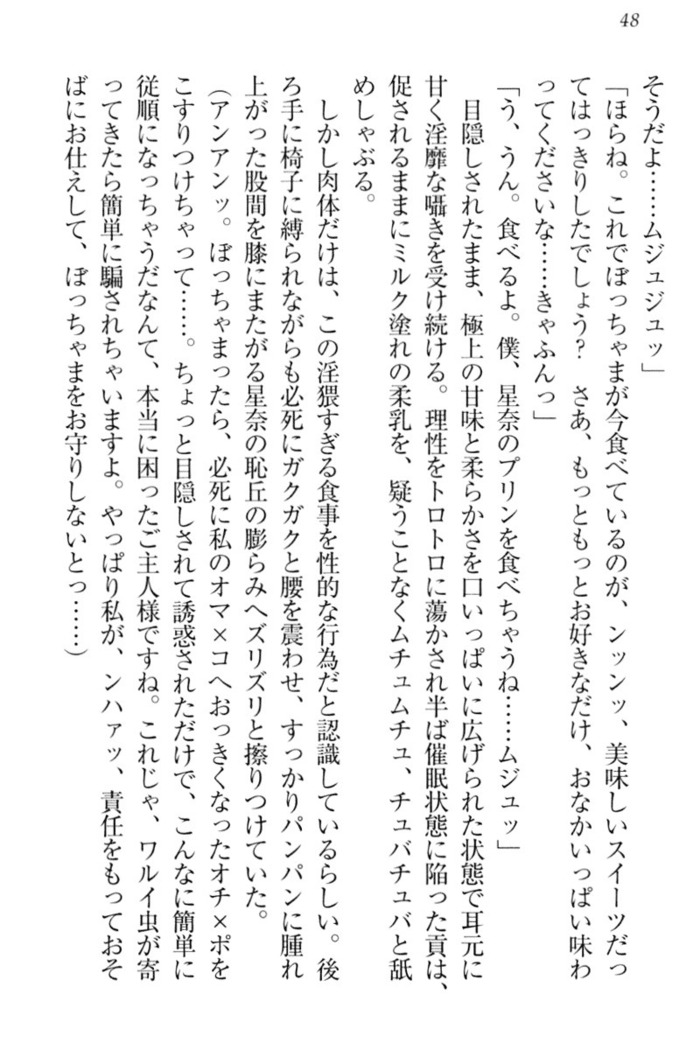 48
そうだよ……ムジュジュッ」
「ほらね。これでぼっちゃまが今食べているのが、ンッンッ、美味しいスイーツだっ
てはっきりしたでしょう？　さあ、もっともっとお好きなだけ、おなかいっぱい味わ
ってくださいな……きゃふんっ」
「う、うん。食べるよ。僕、星奈のプリンを食べちゃうね……ムジュッ」
　目隠しされたまま、極上の甘味と柔らかさを口いっぱいに広げられた状態で耳元に
甘く淫靡な囁きを受け続ける。理性をトロトロに蕩かされ半ば催眠状態に陥った貢は、
促されるままにミルク塗れの柔乳を、疑うことなくムチュムチュ、チュバチュバと舐
めしゃぶる。
　しかし肉体だけは、この淫猥すぎる食事を性的な行為だと認識しているらしい。後
ろ手に椅子に縛られながらも必死にガクガクと腰を震わせ、すっかりパンパンに腫れ
上がった股間を膝にまたがる星奈の恥丘の膨らみへズリズリと擦りつけていた。
（アンアンッ。ぼっちゃまったら、必死に私のオマ×コへおっきくなったオチ×ポを
こすりつけちゃって……。ちょっと目隠しされて誘惑されただけで、こんなに簡単に
従順になっちゃうだなんて、本当に困ったご主人様ですね。これじゃ、ワルイ虫が寄
ってきたら簡単に騙されちゃいますよ。やっぱり私が、ンハァッ、責任をもっておそ
ばにお仕えして、ぼっちゃまをお守りしないとっ……）